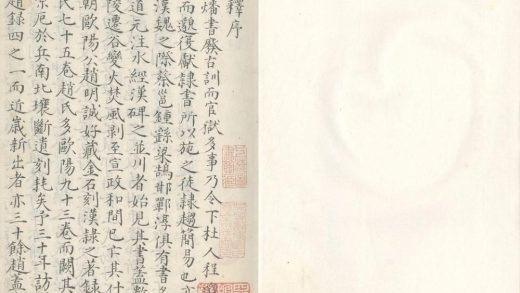 釋序
燔書廢古訓而官獄多事乃令下杜人程邈
而邈復獻隸書所以施之徒隸趨簡易也
漢魏之際蔡邕鍾繇梁鵠邯鄲淳俱有書名
道元注水經漢碑之並川者始見其書蓋數
陵遷谷變火焚風剝至宣政和間已亡其什
朝歐陽公趙明誠好藏金石刻漢隸之著錄
氏七十五卷趙氏多歐陽九十三卷而闕其
厄於兵南北壤斷遺刻耗矣予三十年訪
趙錄四之一而近嵗新出者亦三十餘趙蓋